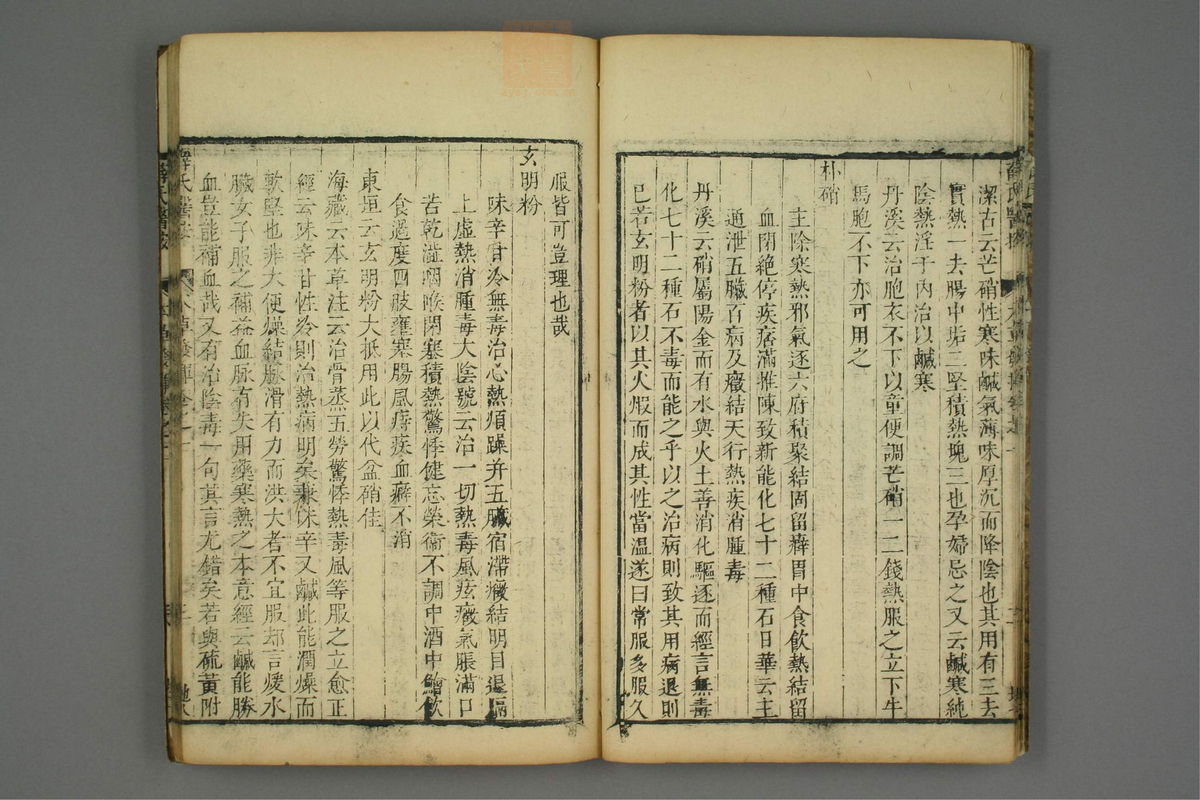 潔古云芒硝性寒味鹹氣薄味厚沉而降陰也其用有三去
實熱一去腸中垢二堅積熱塊三也孕婦忌之又云鹹寒純
陰熱淫于内治以鹹寒
丹溪云治胞衣不下以童便調芒硝一二錢熱服之立下牛
馬胞不下亦可用之
朴硝
主除寒熱邪氣逐六府積聚結固留癖胃中食飲熱結留
血閉絶停疾痞滿推陳致新能化七十二種石日華云主
通泄五臟百病及癥結天行熱疾消腫毒
丹溪云硝屬陽金而有水與火土善消化驅逐而經言無毒
化七十二種石不毒而能之乎以之治病則致其用病退則
已若玄明粉者以其火煆而成其性當温遂曰常服多服久
服皆可豈理也哉
玄明粉
味辛甘冷無毒治心熱煩躁并五臟宿滯癥結明目退膈
上虛熱消腫毒大陰號云治一切熱毒風痃癥氣脹滿口
苦乾澁咽喉閉塞積熱驚悸健忘榮衛不調中酒中鱠飲
食過度四肢壅塞腸風痔疾血癖不消
東垣云玄明粉大抵用此以代盆硝佳
海藏云本草注云治骨蒸五勞驚悸熱毒風等服之立愈正
經云味辛甘性冷則治熱病明矣兼味辛又鹹此能潤燥而
軟堅也非大便燥結脉滑有力而洪大者不宜服却言煖水
臟女子服之補益血脉有失用藥寒熱之本意經云鹹能勝
血豈能補血哉又有治陰毒一句其言尤錯矣若與硫黃附